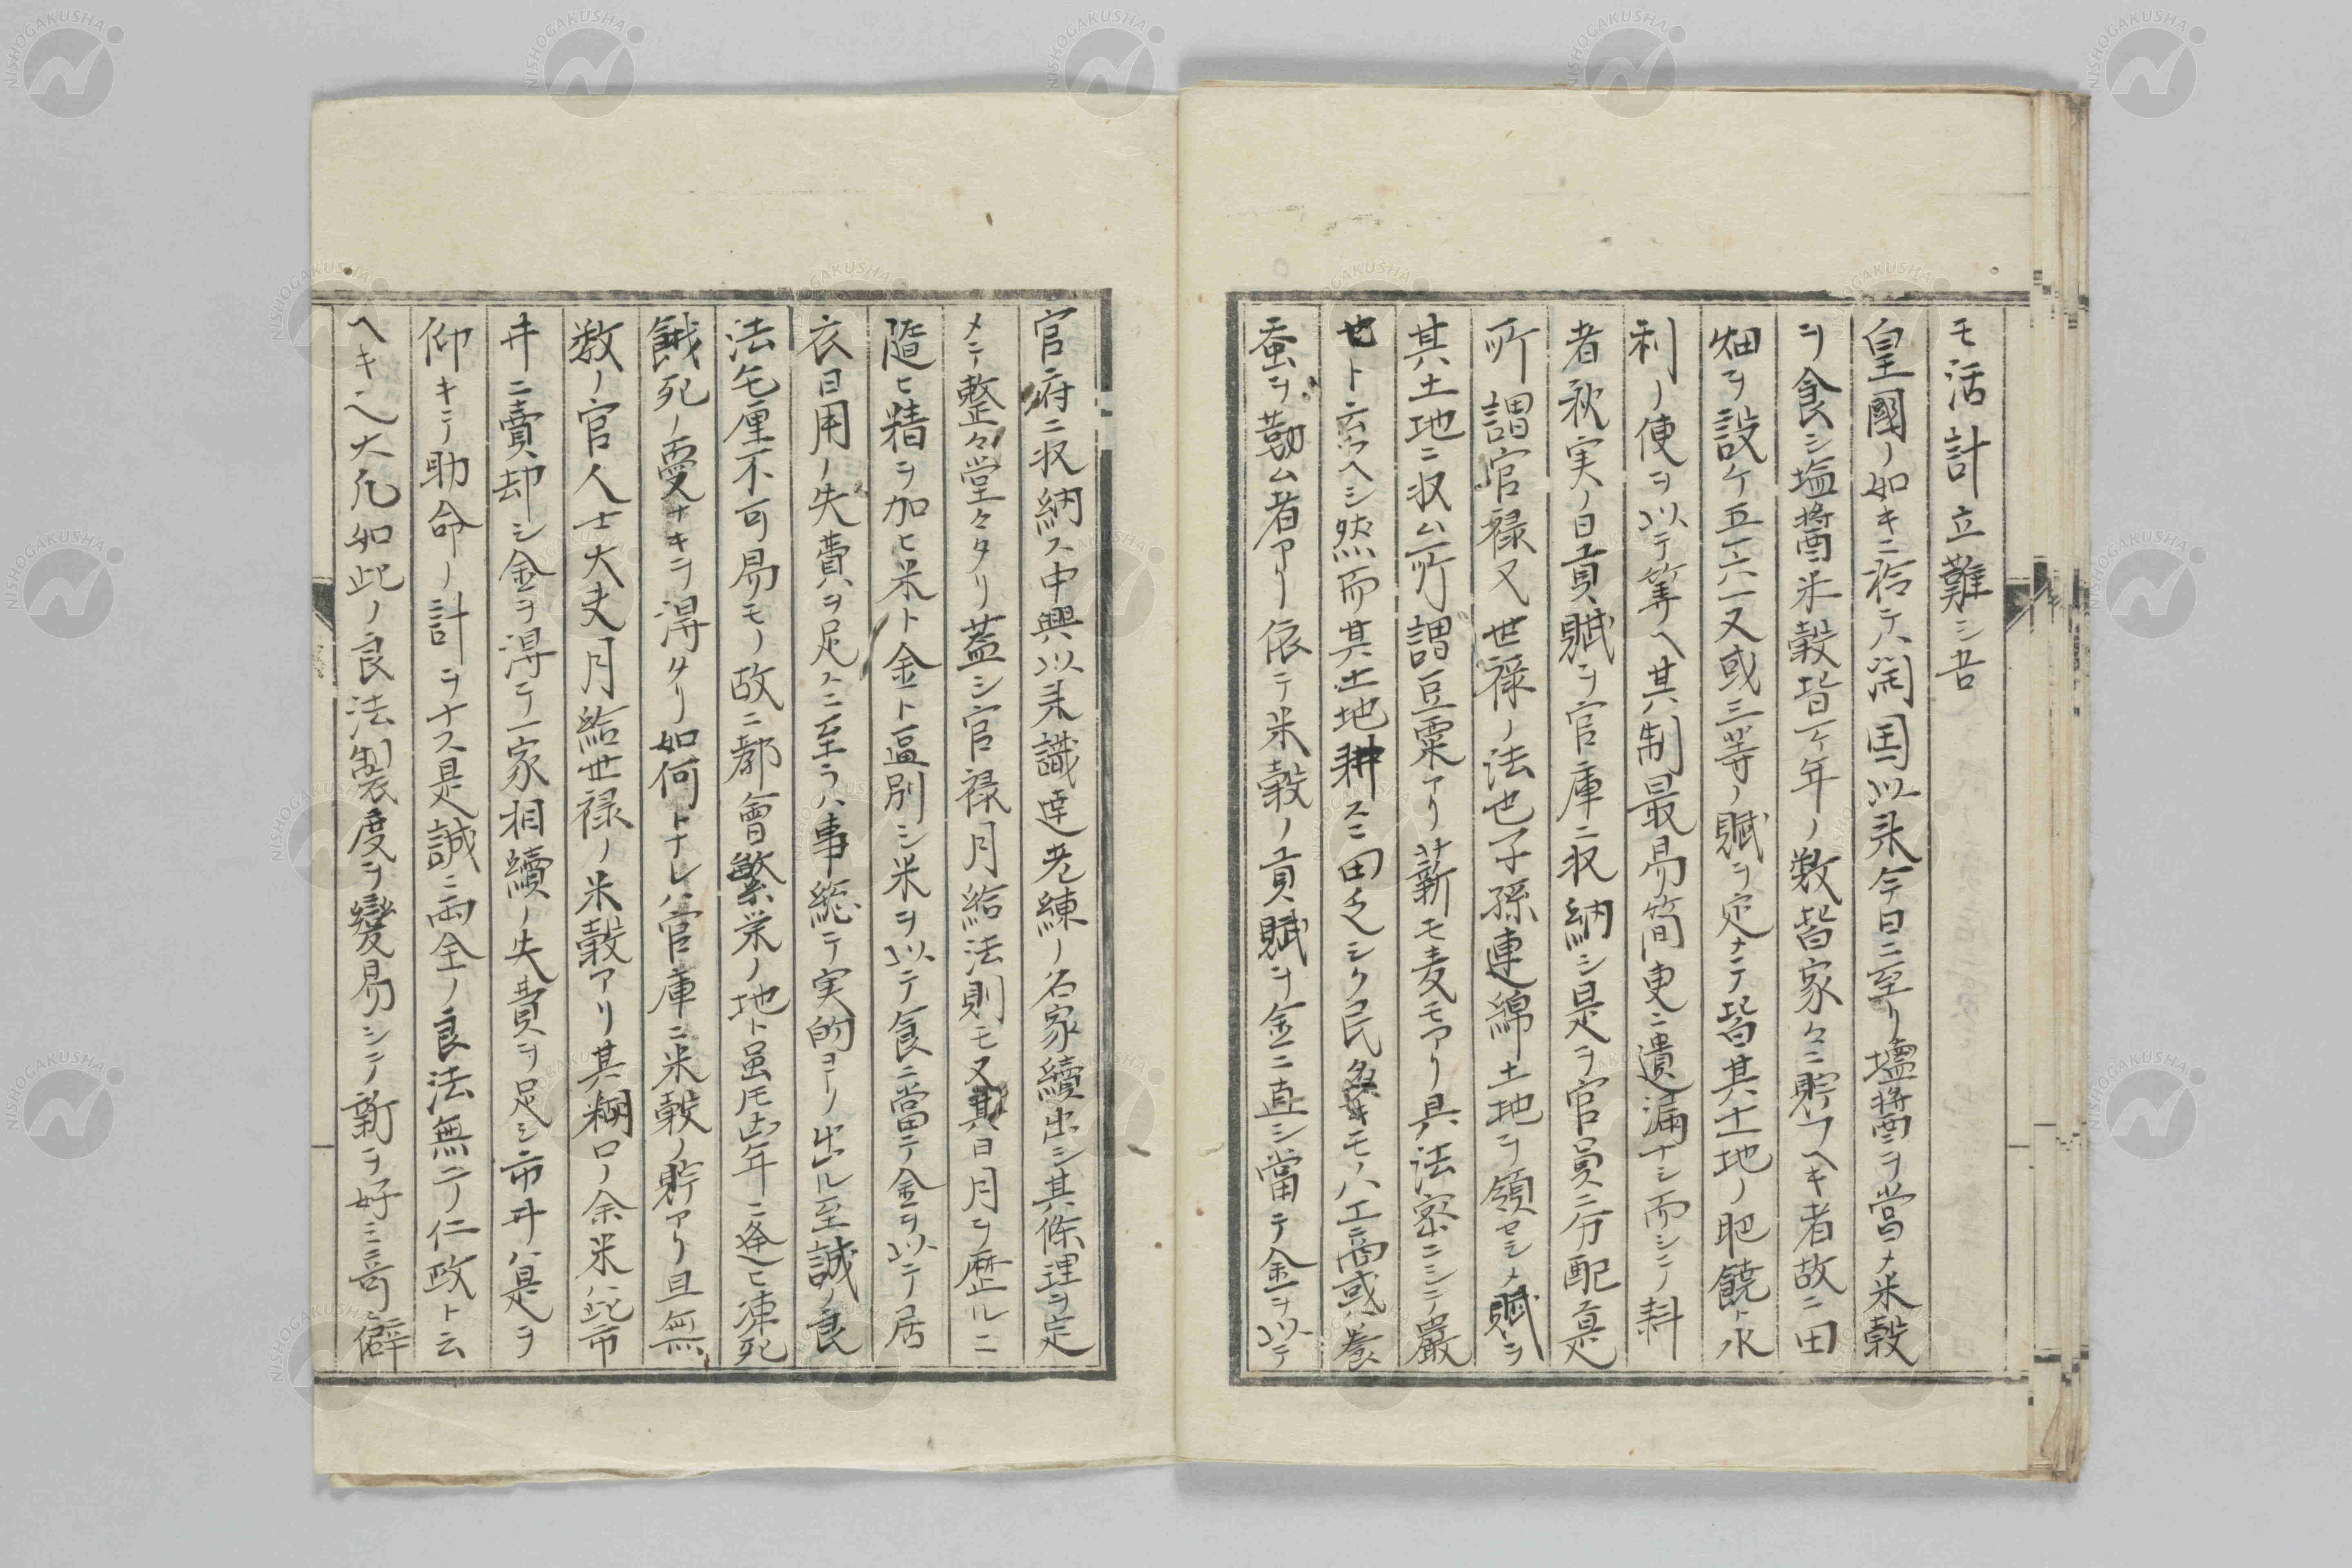 モ活計立難シ吾
皇國ノ如キニ於テハ闢国以来今日ニ至リ塩醤ヲ當メ米穀
ヲ食シ塩醤米穀皆一ケ年ノ数皆家々ニ貯フヘキ者故ニ田
畑ヲ設ケ五六一又或三等ノ賦ヲ定ナテ皆其土地ノ肥饒ト水
利ノ使ヲ以テ等ヘ其制最易簡更ニ遺漏ナシ而シテ耕
者秋実ノ日貢賦ヲ官庫ニ収納シ是ヲ官員ニ分配ス是
所謂官禄又世禄ノ法也子孫連綿土地ヲ領セシメ賦ヲ
其土地ニ収ム所謂豆粟アリ薪モ麦モアリ具法密ニシテ嚴
也ト云フヘシ然而其土地耕スニ田乏シク民多キモノハ工ニ商或ハ養
蚕ヲ勤ム者アリ依テ米穀ノ貢賦ヲ金ニ直シ當テ金ヲ以テ
官府ニ収納ス中興以来識達老練ノ名家續出シ其條理ヲ定
メテ整々堂々タリ蓋シ官禄月給法則モ又其日月ヲ歴ルニ
随ヒ精ヲ加ヒ米ト金ト區別シ米ヲ以テ食ニ當テ金ヲ以テ居
衣日用ノ失費ヲ足スニ至ラハ事総テ実的ヨリ出ル至誠ノ良
法毛厘不可易モノ故ニ都會繁栄ノ地ト虽モ凶年ニ逢ヒ凍死
餓死ノ憂ナキヲ得タリ如何トナレハ官庫ニ米穀ノ貯アリ且無
数ノ官人士大夫月給世禄ノ米穀アリ其糊口ノ余米ハ此市
井ニ賣却シ金ヲ得テ一家相續ノ失費ヲ足シ市井ハ是ヲ
仰キテ助命ノ計ヲナス是誠ニ両全ノ良法無二ノ仁政ト云
ヘキ也大凡如此ノ良法製度ヲ變易シテ新ヲ好ミ奇ニ僻